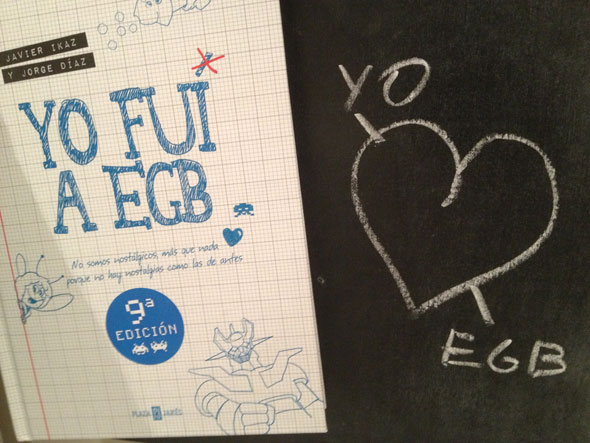 JAVIER IKAZ
Y JORGE DÍAZ
YO FUI
A EGB
No somos nostálgicos, más que nada
porque no hay nostalgias como las de antes
9ª
EDICIÓN
PLAZA JANÉS
YO
EGB